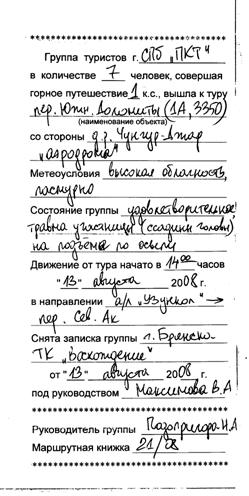 Группа туристов г. СПб "ПКТ"
в количестве 7 человек, совершая
горное путешествие 1 к.с., вышла к туру
пер. Южн. Доломиты (1А, 3350)
(наименование объекта)
со стороны д.р. Чунгур-Джар
"аэродрома"
Метеоусловия высокая облачность,
пасмурно
Состояние группы удовлетворительное
травма участницы (ссадины головы)
на подъёме по осыпи
Движение от тура начато в 14 00 часов
"13" августа 2008 г.
в направлении а/л "Узункол" →
пер. Сев. Ак
Снята записка группы г. Брянска
ТК "Восхождение"
от "13" августа 2008 г.
под руководством Максимова В.А
Руководитель группы Подопригора Н.А
Маршрутная книжка 21/08